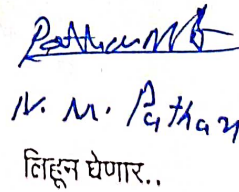 N. M. Pathan
लिहून घेणार..